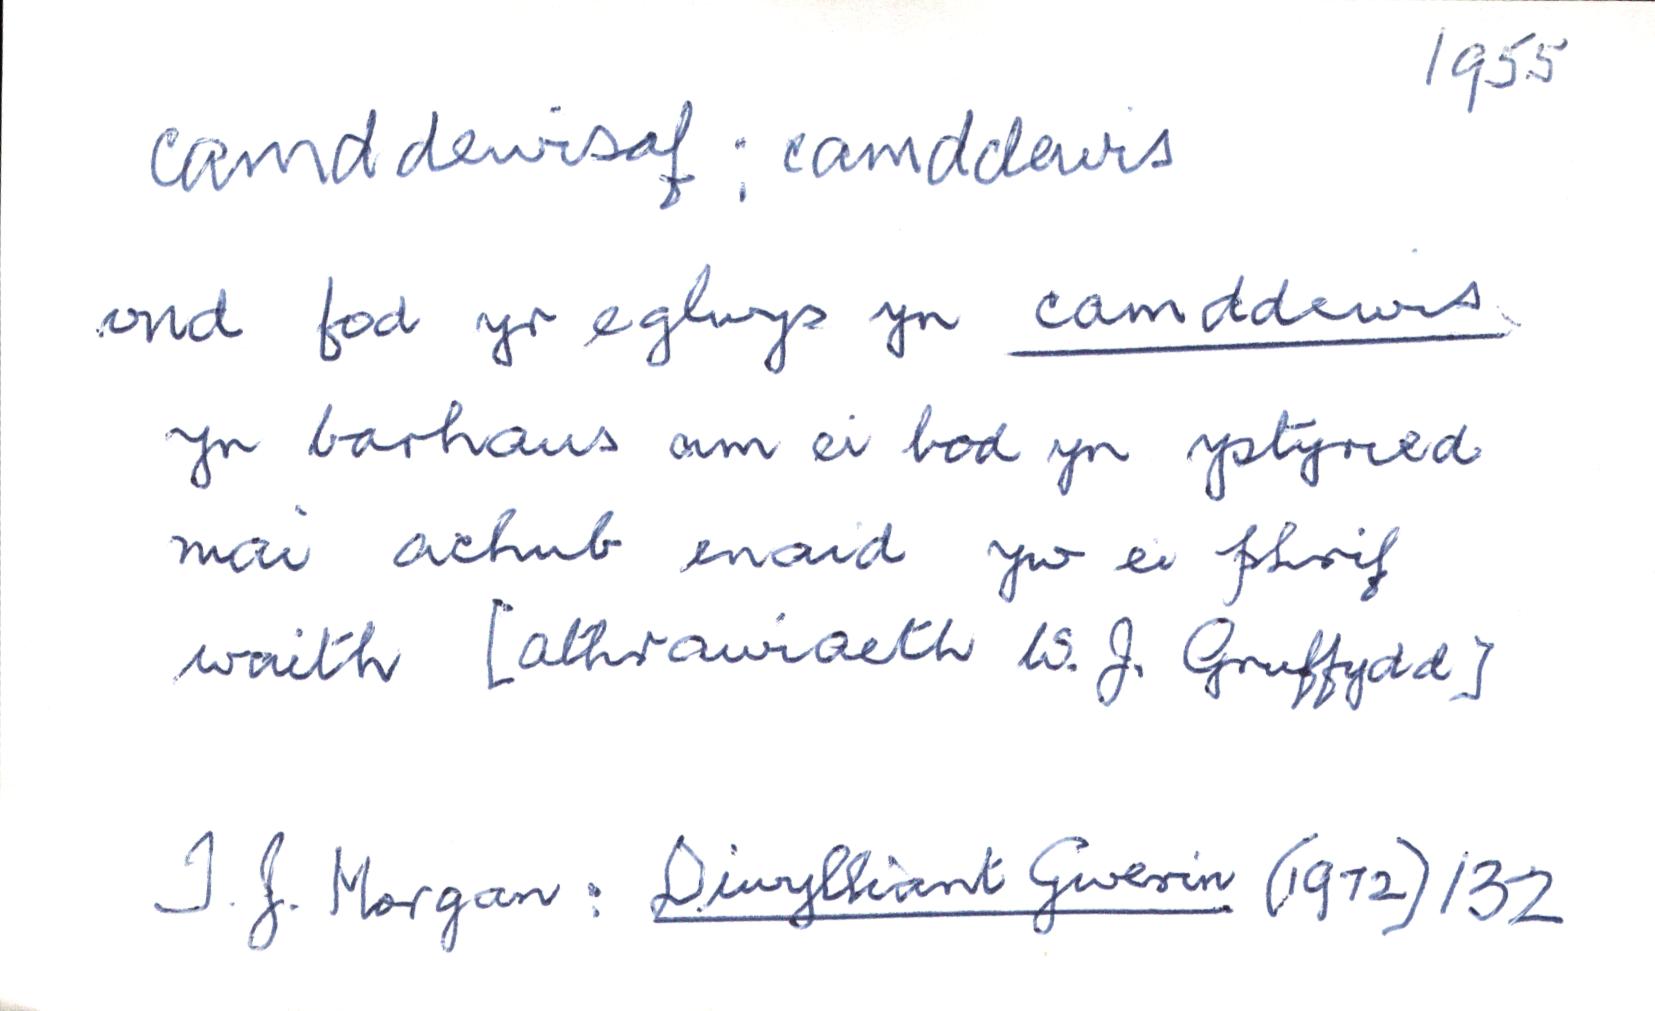 1955
camddewisaf ; camddewis
ond fod yr eglwys yn camddewis
yn barhaus am ei bod yn ystyried
mai achub enaid yw ei phrif
waith [athrawiaeth W. J. Gruffydd]
T. J. Morgan : Diwylliant Gwerin (1972) 132